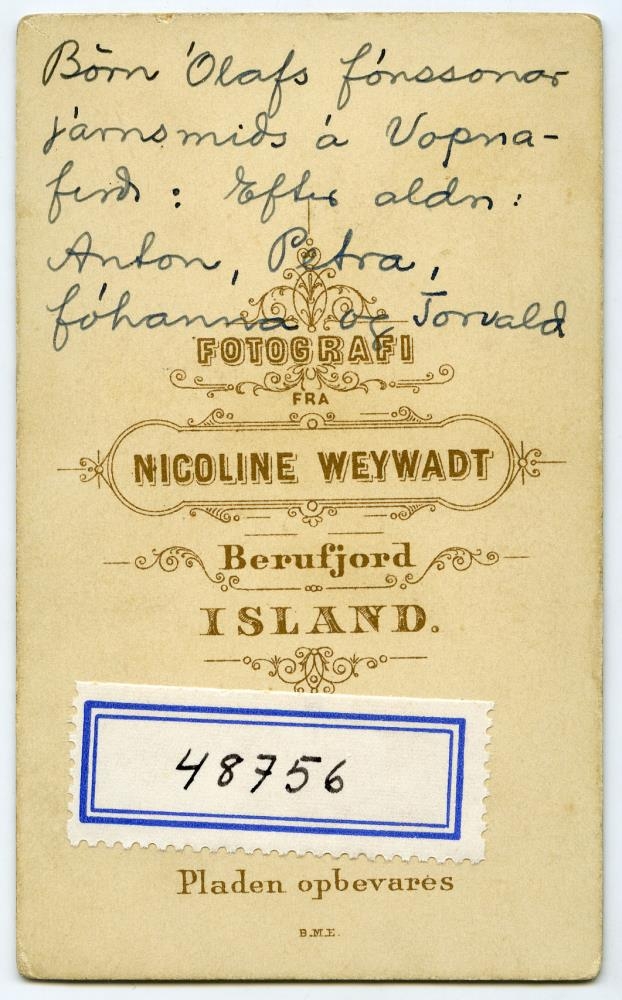 Börn Ólafs Jónssonar
járnsmiðs á Vopna-
firði: Eftir aldri:
Anton, Petra,
Jóhanna og Torvald
FOTOGRAFI
FRA
NICOLINE WEYWADT
Berufjord
ISLAND.
48756
Pladen opbevares
B.M.E.